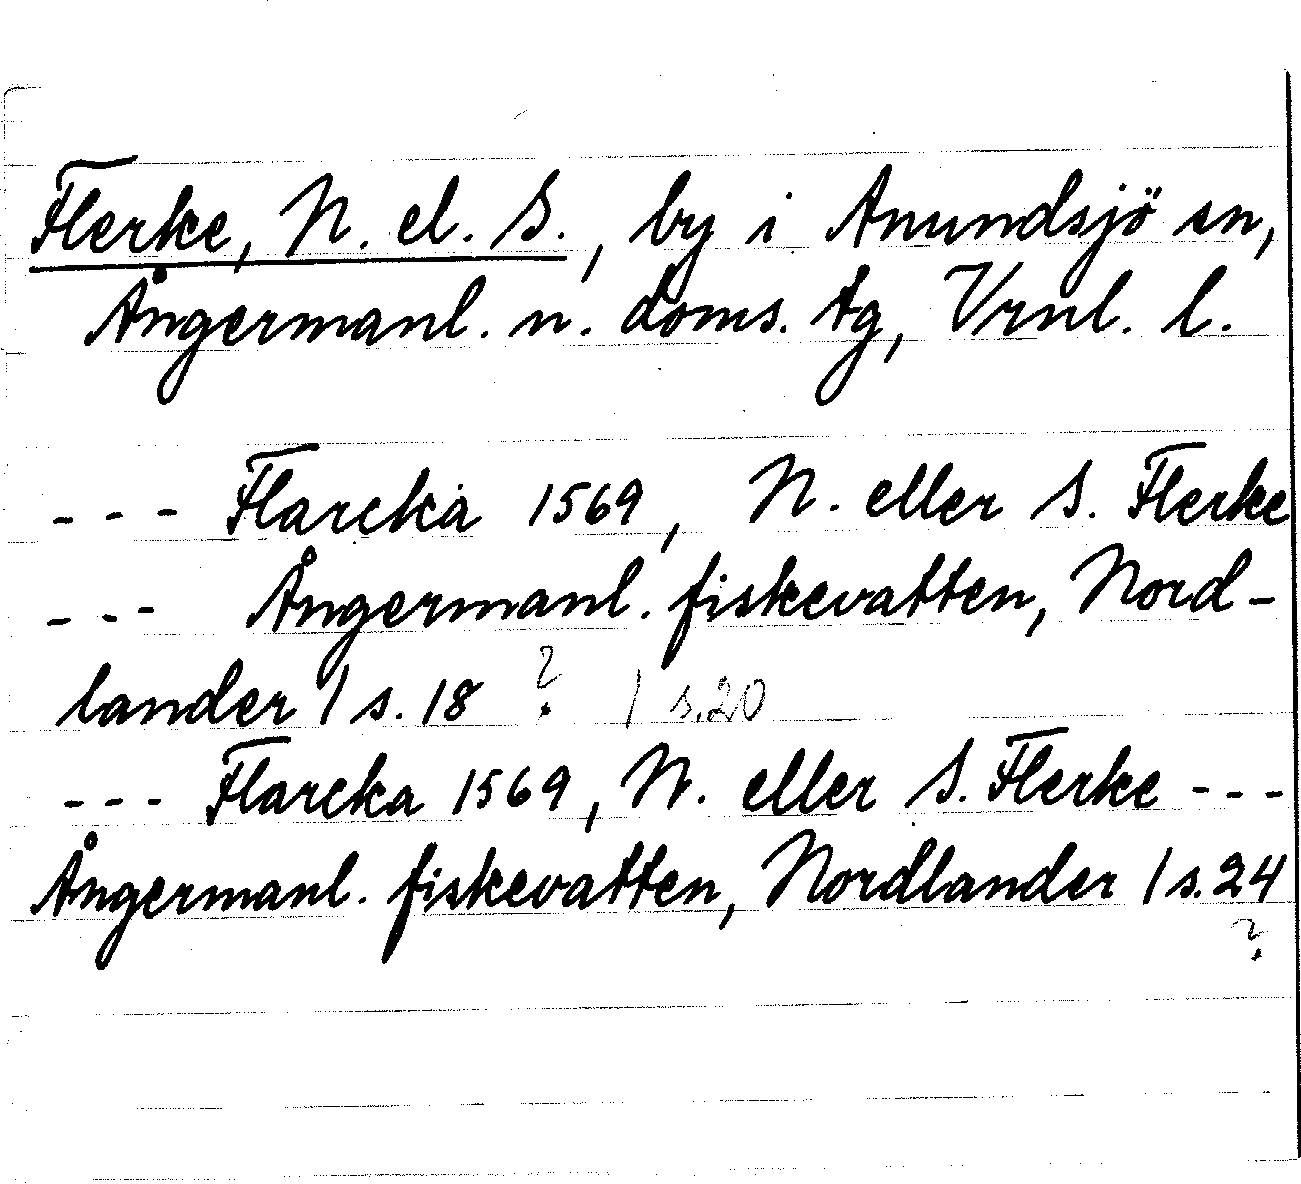 Flerke, N. el. S., by i Anundsjö sn,
Ångermanl. n. doms. tg, Vrnl. l.
--- Flarcka 1569, N. eller S. Flerke
--- Ångermanl. fiskevatten, Nord-
lander 1 s. 18 ? 1 s. 20
--- Flarcka 1569, N. eller S. Flerke ---
Ångermanl. fiskevatten, Nordlander 1 s. 24
?